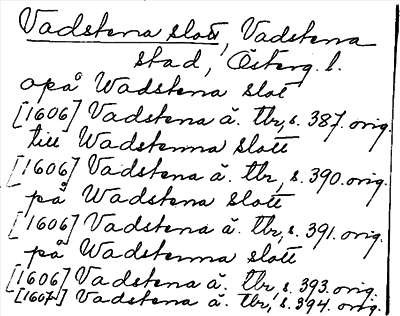 Vadstena slott, Vadstena
stad, Österg. l.
opå Wadstena slot
[1606] Vadstena ä. tbr, s. 387. orig.
till Wadstenna slott
[1606] Vadstena ä. tbr, s. 390. orig.
på Wadstena slott
[1606] Vadstena ä. tbr, s. 391. orig.
på Wadstenna slott
[1606] Vadstena ä. tbr, s. 393. orig.
Vadstena ä. tbr, s. 394. orig.